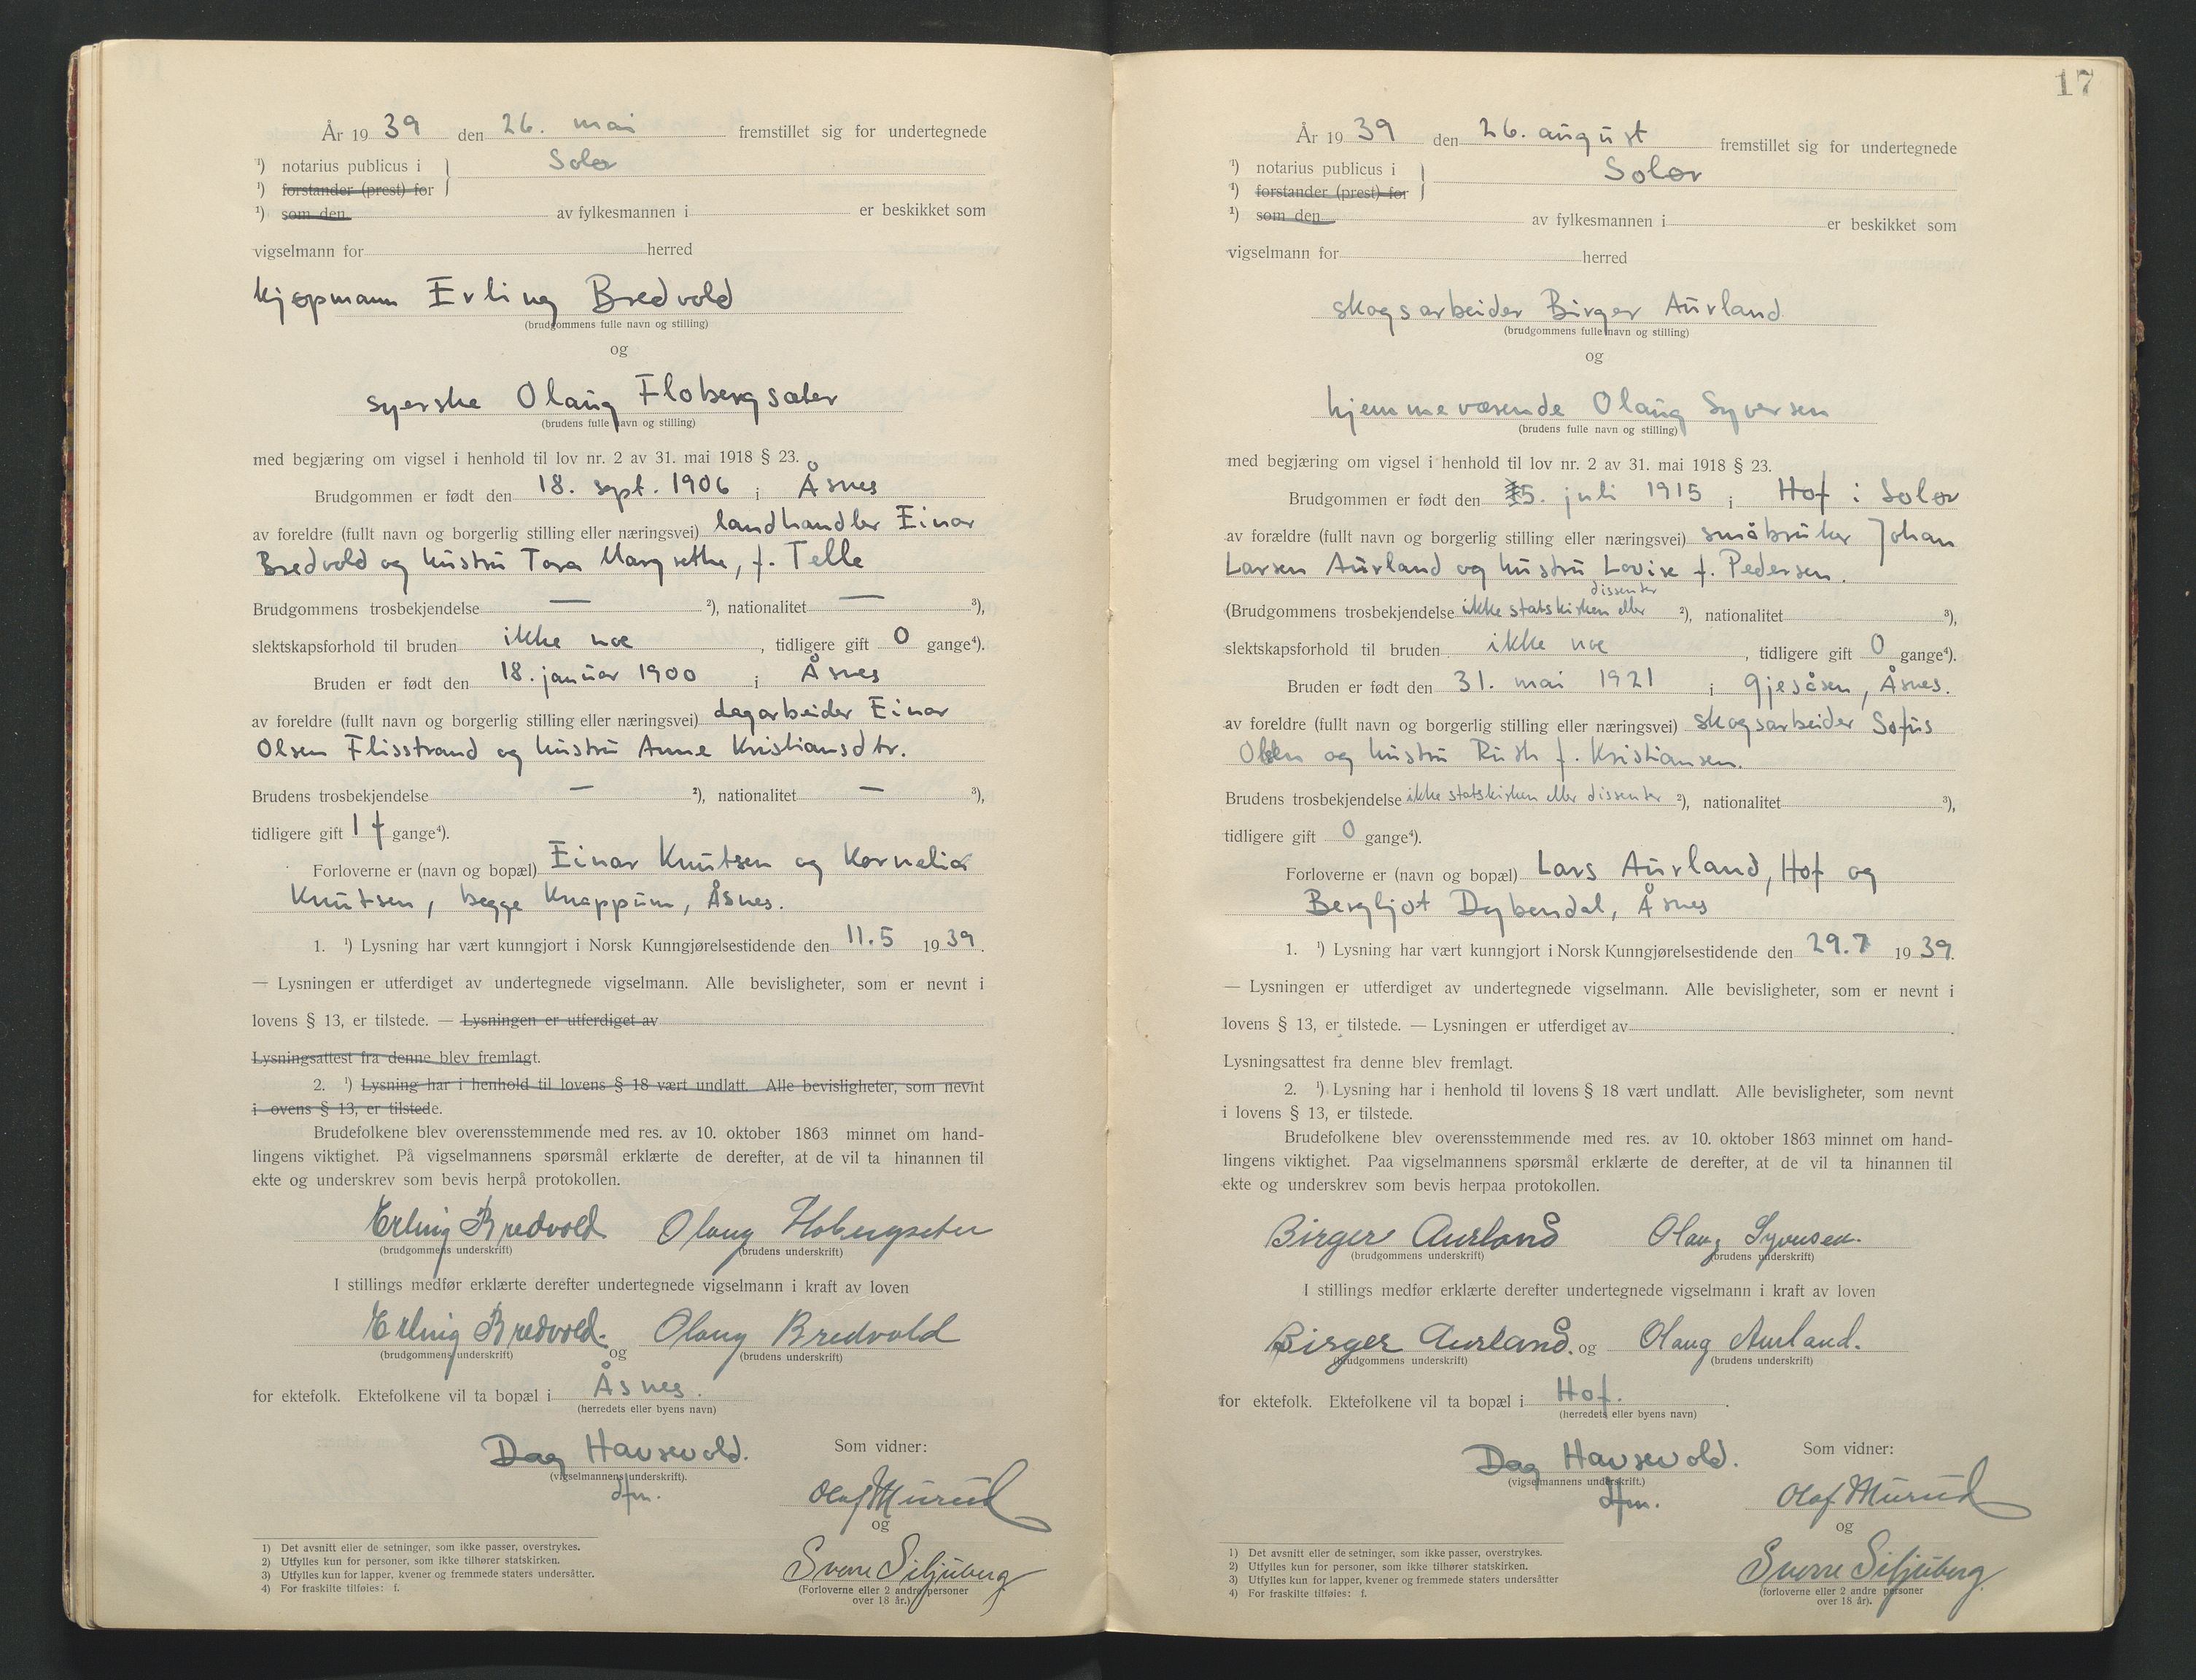 År 19 39 den 26. mai fremstillet sig for undertegnede
¹) notarius publicus i Solør
¹) forstander (prest) for
¹) som den av fylkesmannen i er beskikket som
vigselmann for herred
kjøpmann Erling Bredvold
(brudgommens fulle navn og stilling)
og
syerske Olaug Flobergsæter
(brudens fulle navn og stilling)
med begjæring om vigsel i henhold til lov nr. 2 av 31. mai 1918 § 23.
Brudgommen er født den 18. sept. 1906 i Åsnes
av foreldre (fullt navn og borgerlig stilling eller næringsvei) landhandler Einar
Bredvold og hustru Tora Margrethe, f. Telle
Brudgommens trosbekjendelse — ²), nationalitet — ³),
slektskapsforhold til bruden ikke noe, tidligere gift 0 gange⁴).
Bruden er født den 18. januar 1900 i Åsnes
av foreldre (fullt navn og borgerlig stilling eller næringsvei) dagarbeider Einar
Olsen Flisstrand og hustru Anne Kristiansdtr.
Brudens trosbekjendelse — ²), nationalitet — ³),
tidligere gift 1 f gange⁴).
Forloverne er (navn og bopæl) Einar Knutsen og Kornelia
Knutsen, begge Knappum, Åsnes.
1. ¹) Lysning har vært kunngjort i Norsk Kunngjørelsestidende den 11.5 19 39.
— Lysningen er utferdiget av undertegnede vigselmann. Alle bevisligheter, som er nevnt i
lovens § 13, er tilstede. — Lysningen er utferdiget av
Lysningsattest fra denne blev fremlagt.
2. ¹) Lysning har i henhold til lovens § 18 vært undlatt. Alle bevisligheter, som nevnt
i ovens § 13, er tilstede.
Brudefolkene blev overensstemmende med res. av 10. oktober 1863 minnet om hand-
lingens viktighet. På vigselmannens spørsmål erklærte de derefter, at de vil ta hinannen til
ekte og underskrev som bevis herpå protokollen.
Erling Bredvold Olaug Flobergseter
(brudgommens underskrift) (brudens underskrift)
I stillings medfør erklærte derefter undertegnede vigselmann i kraft av loven
Erling Bredvold. og Olaug Bredvold
(brudgommens underskrift) (brudens underskrift)
for ektefolk. Ektefolkene vil ta bopæl i Åsnes.
(herredets eller byens navn)
Dag Hausevold. Som vidner:
(vigselmannens underskrift).
dfm. Olaf Murud
og
Sverre Siljuberg
(Forloverne eller 2 andre personer
over 18 år.)
1) Det avsnitt eller de setninger, som ikke passer, overstrykes.
2) Utfylles kun for personer, som ikke tilhører statskirken.
3) Utfylles kun for lapper, kvener og fremmede staters undersåtter.
4) For fraskilte tilføies: f.
17
År 19 39 den 26. august fremstillet sig for undertegnede
¹) notarius publicus i Solør
¹) forstander (prest) for
¹) som den av fylkesmannen i er beskikket som
vigselmann for herred
skogsarbeider Birger Aurland
(brudgommens fulle navn og stilling)
og
hjemmeværende Olaug Syversen
(brudens fulle navn og stilling)
med begjæring om vigsel i henhold til lov nr. 2 av 31. mai 1918 § 23.
Brudgommen er født den 5. juli 1915 i Hof i Solør
av forældre (fullt navn og borgerlig stilling eller næringsvei) småbruker Johan
Larsen Aurland og hustru Lovise f. Pedersen.
(Brudgommens trosbekjendelse ikke statskirken eller dissenter ²), nationalitet ³),
slektskapsforhold til bruden ikke noe, tidligere gift 0 gange⁴).
Bruden er født den 31. mai 1921 i Gjesåsen, Åsnes.
av foreldre (fullt navn og borgerlig stilling eller næringsvei) skogsarbeider Sofus
Olsen og hustru Ruth f. Kristiansen.
Brudens trosbekjendelse ikke statskirken eller dissenter ²), nationalitet ³),
tidligere gift 0 gange⁴).
Forloverne er (navn og bopæl) Lars Aurland, Hof og
Bergljot Dybendal, Åsnes
1. ¹) Lysning har vært kunngjort i Norsk Kunngjørelsestidende den 29.7 19 39.
— Lysningen er utferdiget av undertegnede vigselmann. Alle bevisligheter, som er nevnt i
lovens § 13, er tilstede. — Lysningen er utferdiget av
Lysningsattest fra denne blev fremlagt.
2. ¹) Lysning har i henhold til lovens § 18 vært undlatt. Alle bevisligheter, som nevnt
i lovens § 13, er tilstede.
Brudefolkene blev overensstemmende med res. av 10. oktober 1863 minnet om hand-
lingens viktighet. Paa vigselmannens spørsmål erklærte de derefter, at de vil ta hinannen til
ekte og underskrev som bevis herpaa protokollen.
Birger Aurland Olaug Syversen.
(brudgommens underskrift) (brudens underskrift)
I stillings medfør erklærte derefter undertegnede vigselmann i kraft av loven
Birger Aurland. og Olaug Aurland.
(brudgommens underskrift) (brudens underskrift)
for ektefolk. Ektefolkene vil ta bopæl i Hof.
(herredets eller byens navn)
Dag Hausevold. Som vidner:
(vigselmannens underskrift.)
dfm. Olaf Murud
og
Sverre Siljuberg
(forloverne eller 2 andre personer
over 18 år).
1) Det avsnitt eller de setninger, som ikke passer, overstrykes.
2) Utfylles kun for personer, som ikke tilhører statskirken.
3) Utfylles kun for lapper, kvener og fremmede staters undersåtter
4) For fraskilte tilføies: f.